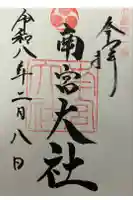 奉拝
南宮大社
令和八年二月八日